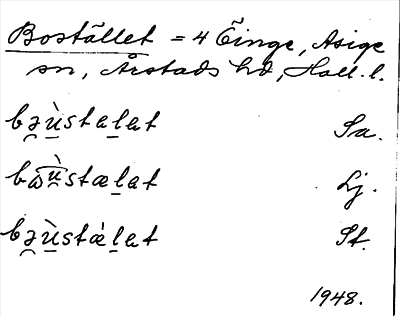 Boställlet = 4 Éinge, Asige
sn, Årstads hd, Hall. l.
bə̯ù̱staḻat Sa.
bω̯ù̱stæḻat Lj.
bə̯ù̱stæ̀ḻat St.
1948.